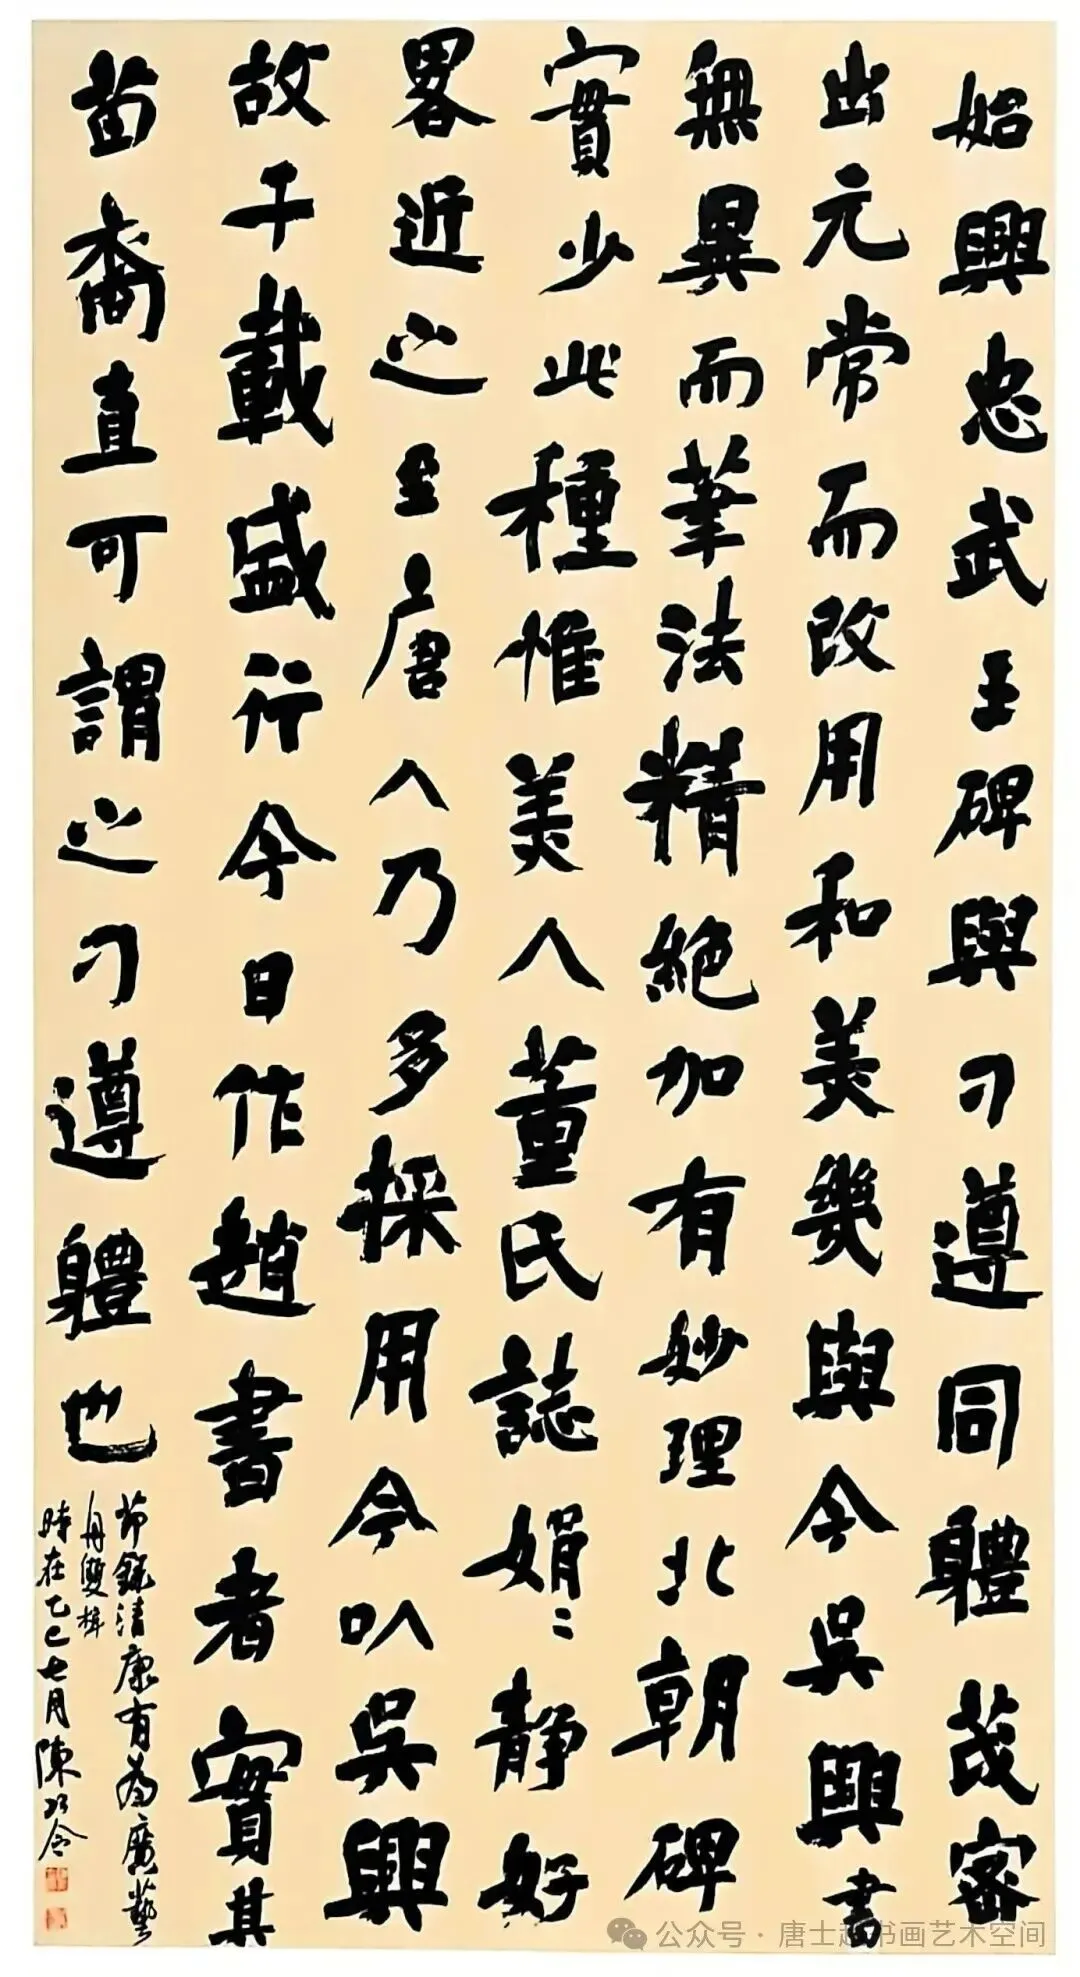 始興忠武王碑與刁遵同體茂密
出元常而改用和美幾與今吳興書
無異而筆法精絕加有妙理北朝碑
實少此種惟美人董氏誌娟〻靜好
畧近之至唐人乃多採用今以吳興
故千載盛行今日作趙書者實其
苗裔直可謂之刁遵體也
節錄清康有為廣藝
舟雙楫
時在乙巳七月陳
公众号·唐士书画艺术空间